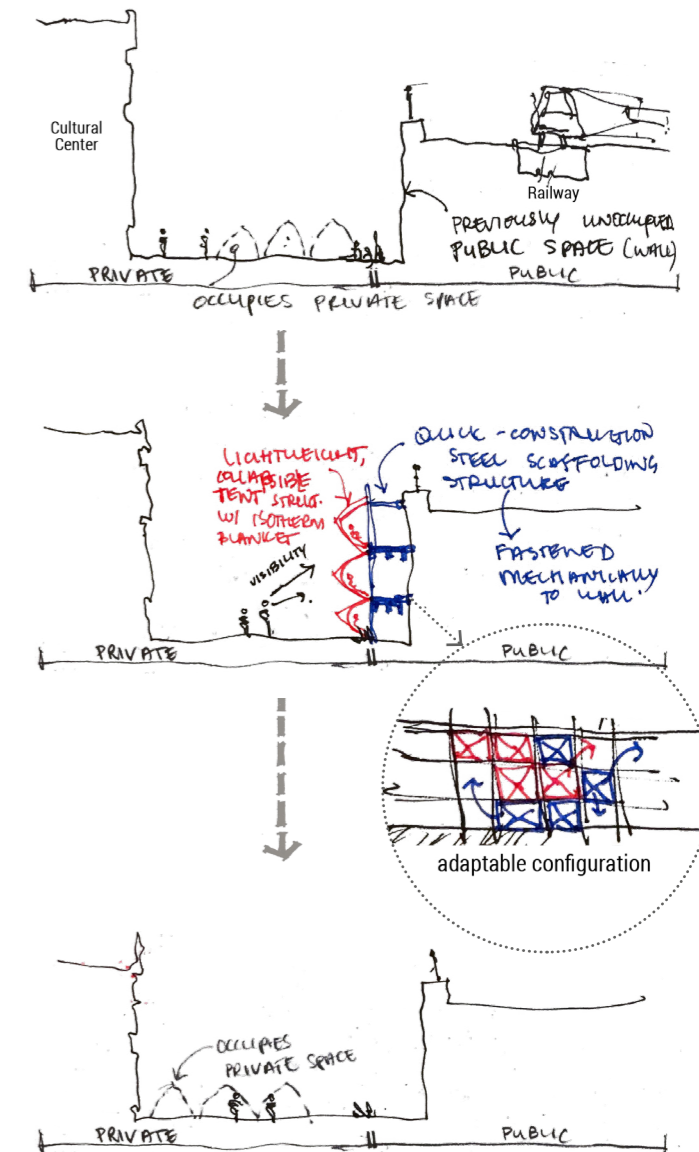 Cultural
Center
Railway
PREVIOUSLY UNOCCUPIED
PUBLIC SPACE (WALL)
PRIVATE
PUBLIC
OCCUPIES PRIVATE SPACE
LIGHTWEIGHT,
COLLAPSIBLE
TENT STRUCT.
W/ ISOTHERM
BLANKET
QUICK - CONSTRUCTION
STEEL SCAFFOLDING
STRUCTURE
VISIBILITY
FASTENED
MECHANICALLY
TO WALL.
PRIVATE
PUBLIC
adaptable configuration
OCCUPIES
PRIVATE SPACE
PRIVATE
PUBLIC